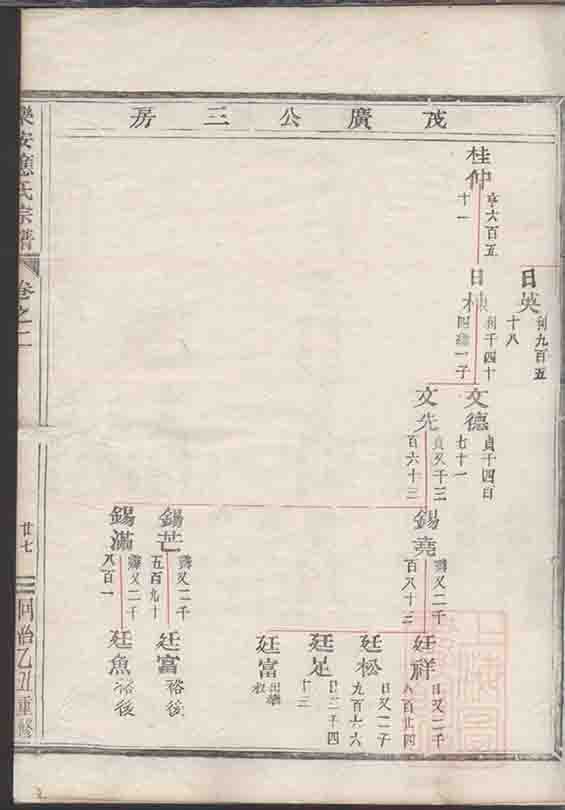 茂廣公三房
桂仲
亨六百五
十一
日英
利九百五
十八
日
利千四十
四 一子
文德
貞千四百
七十一
文先
貞又千三
百六十三
錫堯
又二千
百八十三
錫芒
又二千
五百九十
錫滿
又二千
八百一
廷祥
日又二千
八百廿四
廷松
日又二千
九百六六
廷足
日三千四
廿三
廷富
廷富
裕後
廷魚
裕後
樂安應氏宗譜
卷之二
廿七
同治乙丑重修